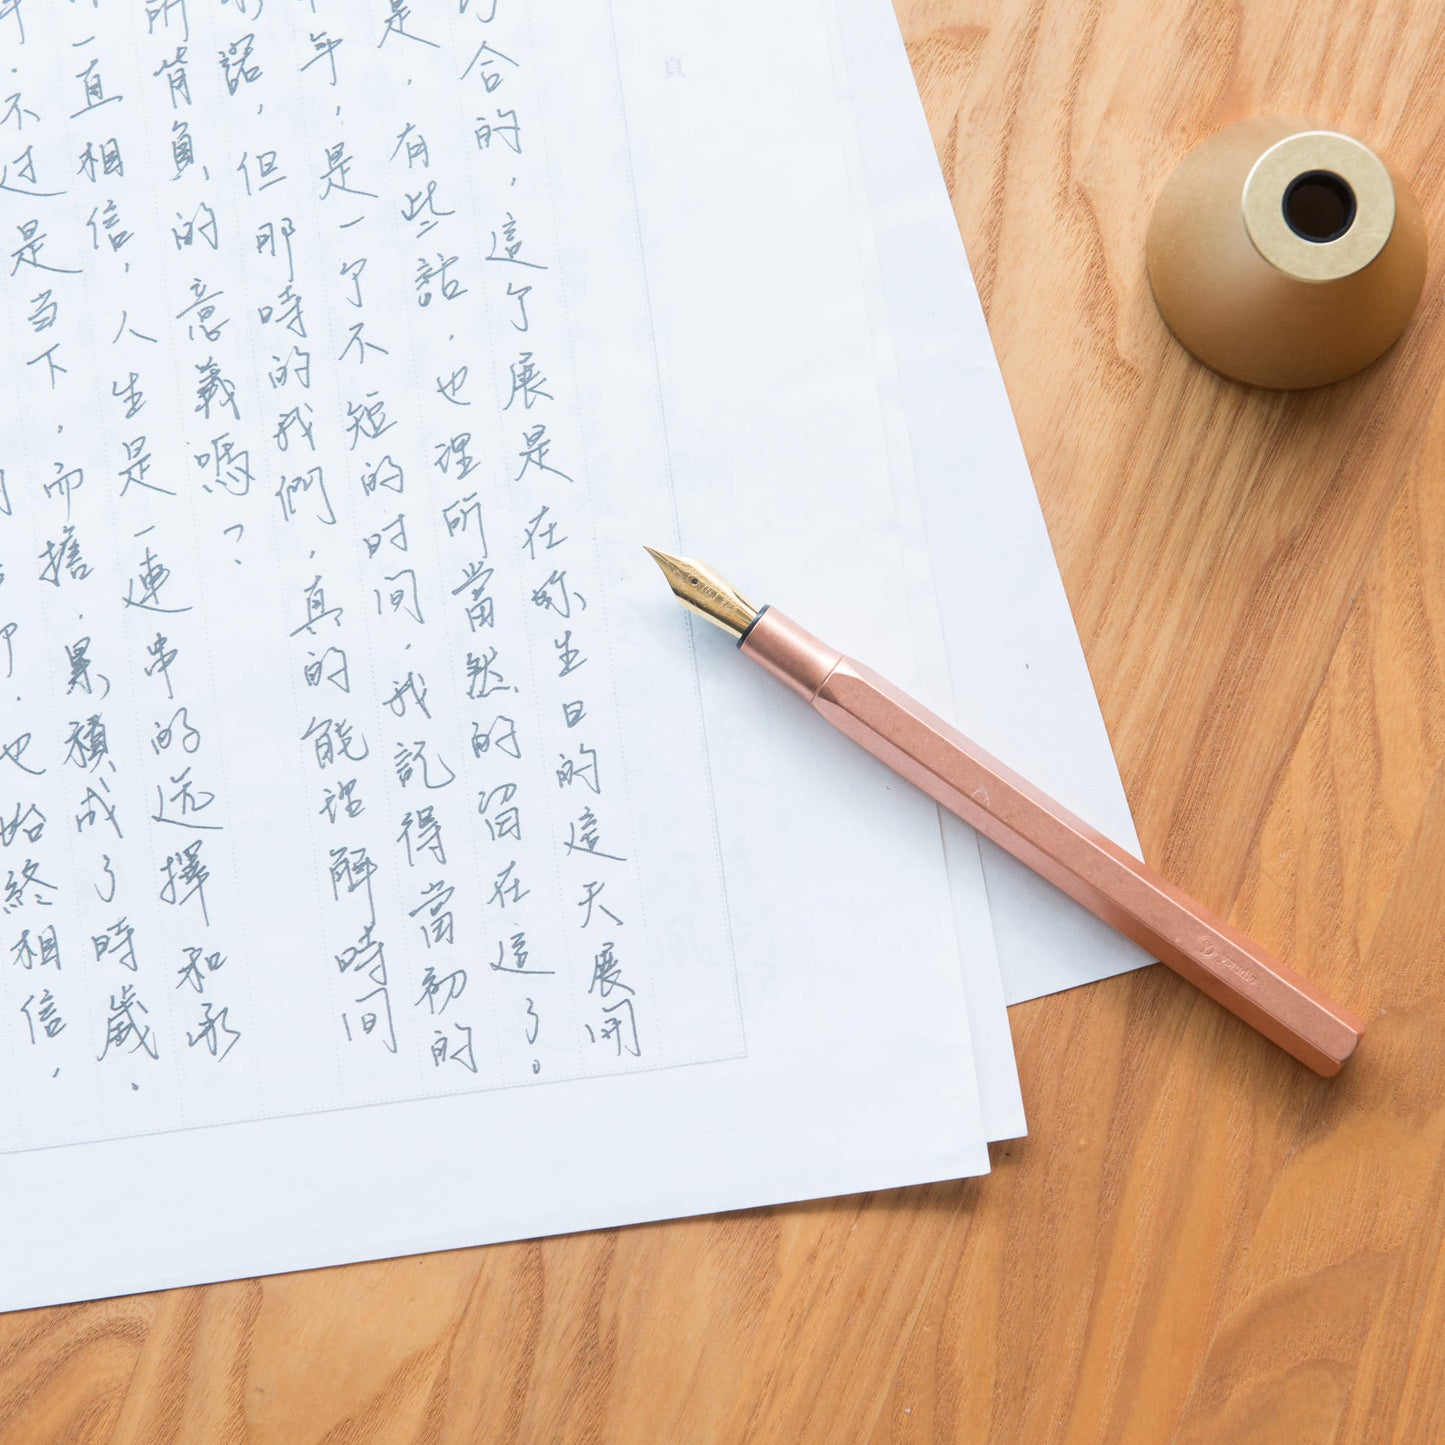 合的，這个展是在妳生日的這天展開
是．有些話，也理所當然的留在這了。
年，是一个不短的时间，我記得當初的
諾，但那時的我們，真的能理解時间
所背負的意義嗎？
一直相信，人生是一連串的选擇和承
年．不过是当下，而擔．累積成了時歲．
也始終相信，
頁
ystudio